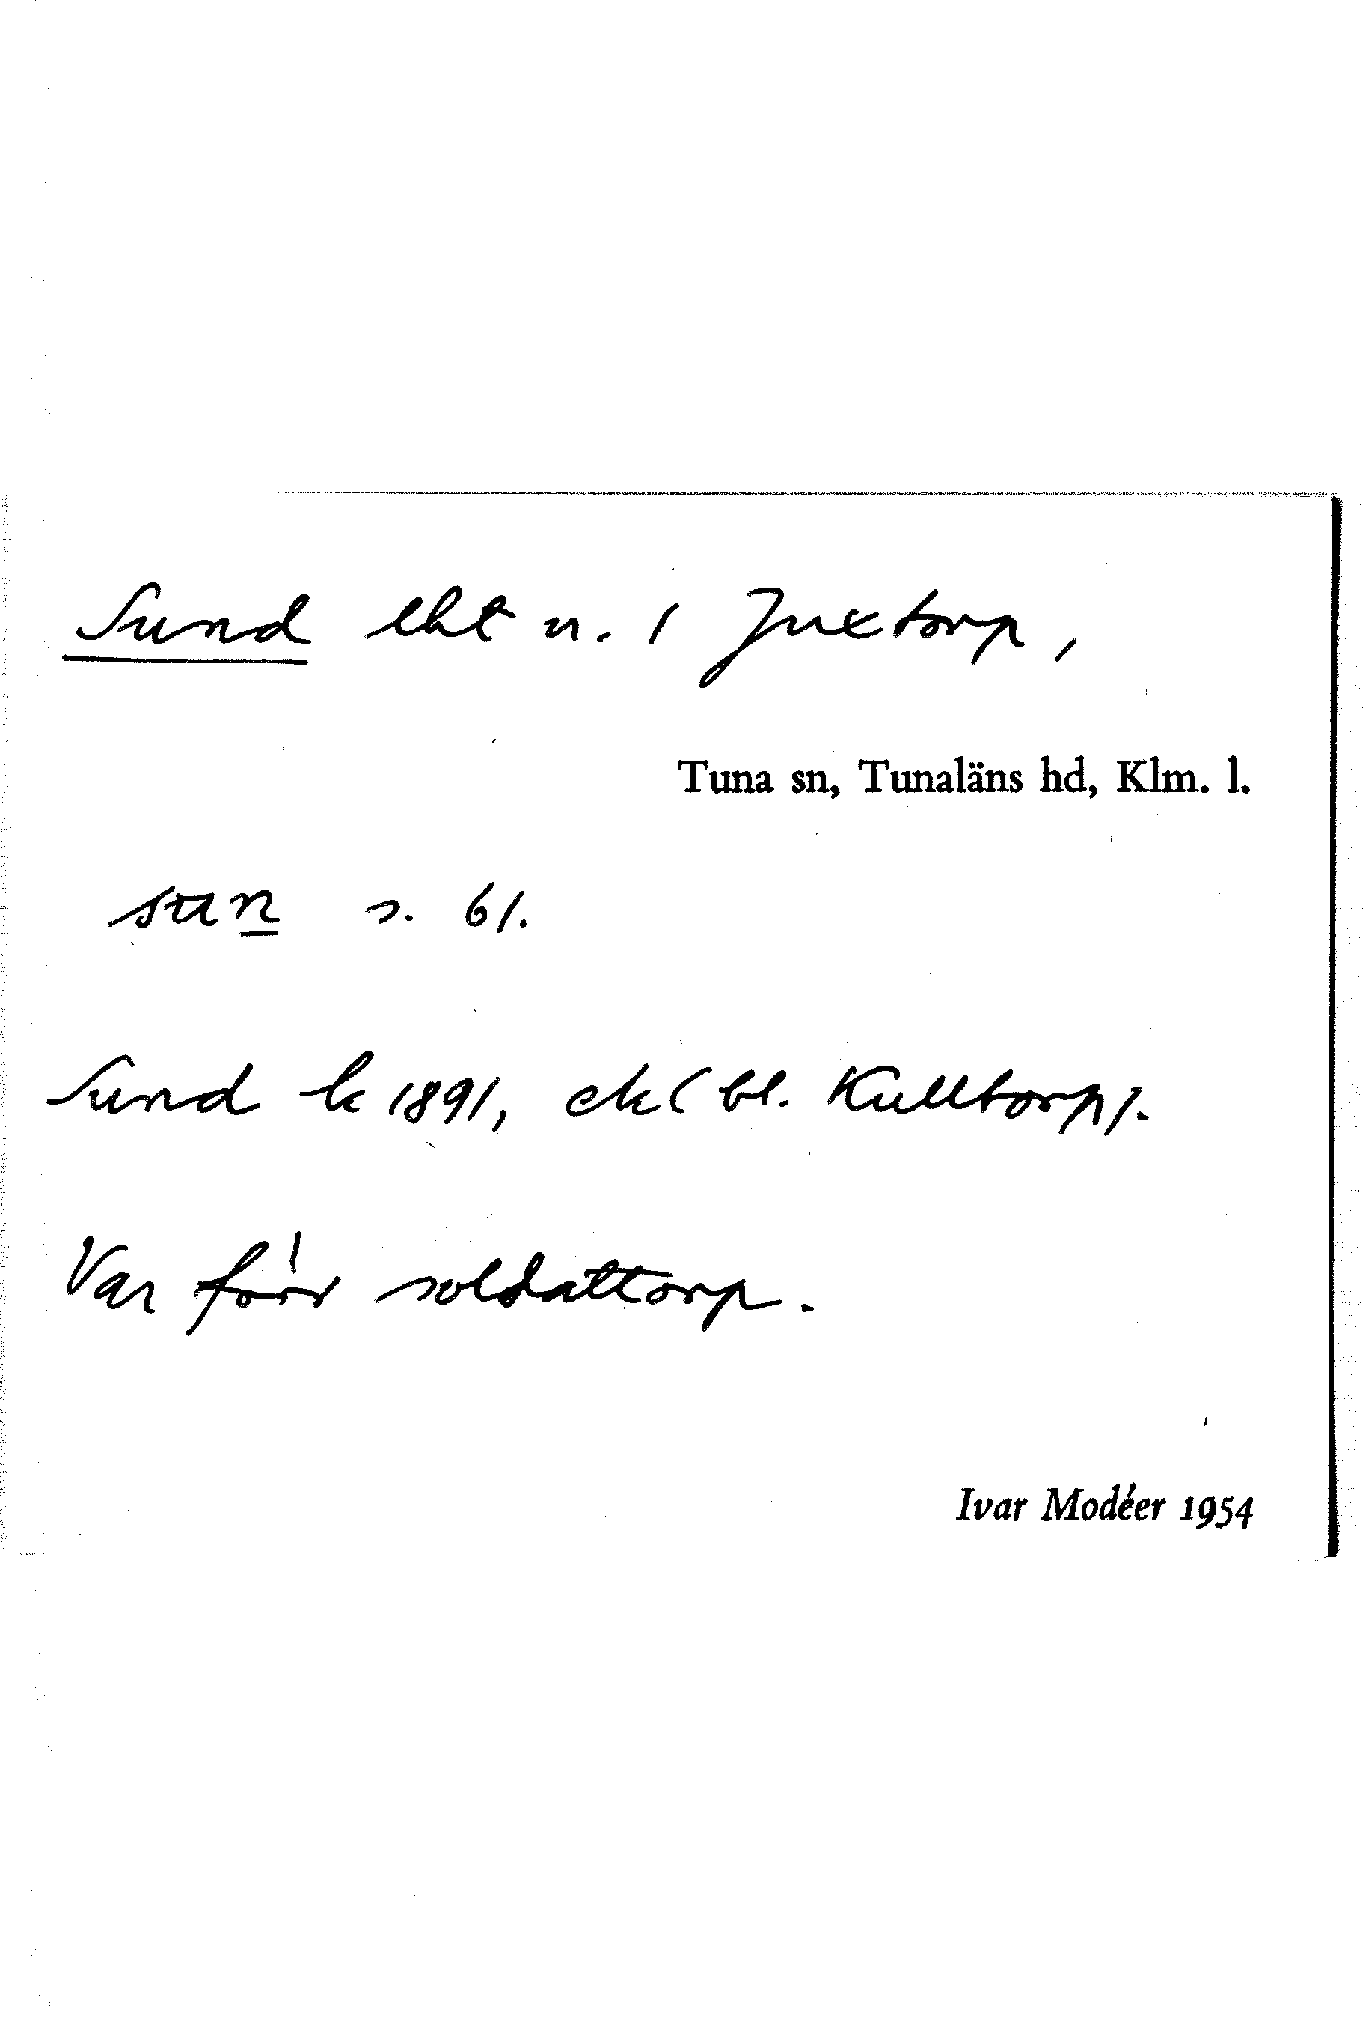 Sund lht n. 1 Juxtorp,
Tuna sn, Tunaläns hd, Klm. l.
s. 61.
Sund k 1891, ek (bl. Kulltorp).
Var förr soldattorp.
Ivar Modéer 1954